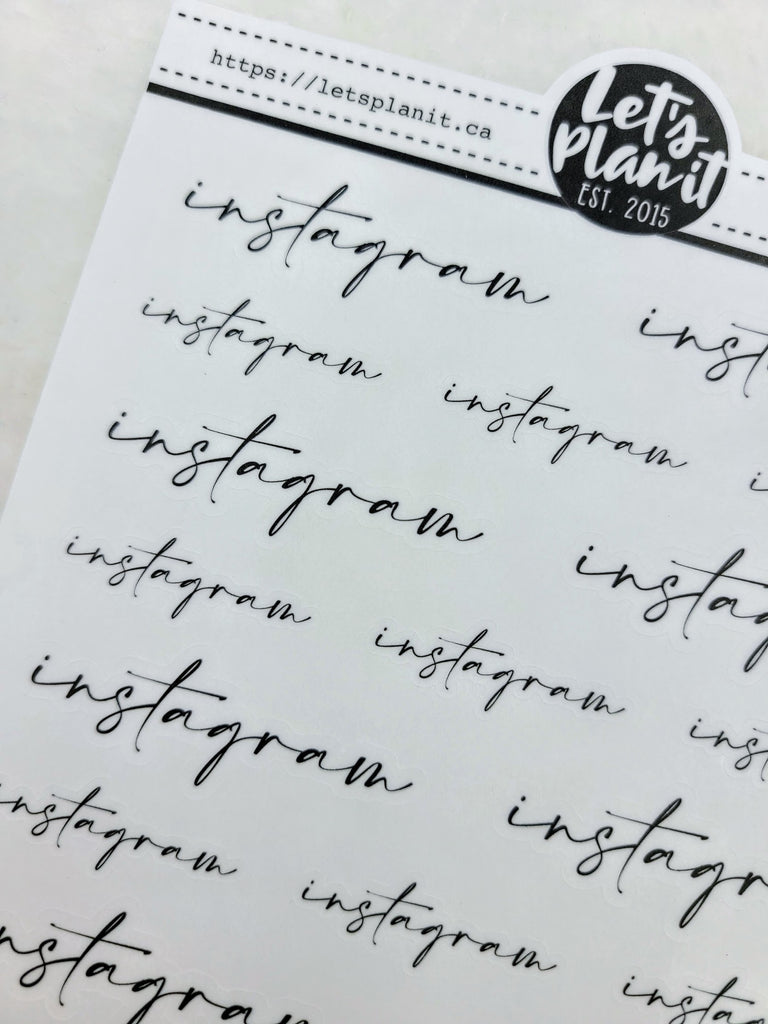 https://letsplanit.ca
Let's
Planit
EST. 2015
instagram inst
instagram instagram i
instagram instag
instagram instagram ins
instagram instagr
instagram instagram insta
instagram